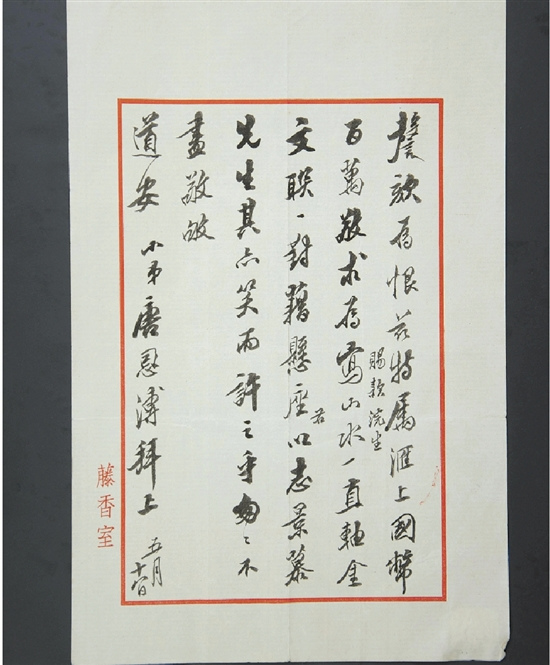 謦欬為恨茲特屬滙上國幣
百萬敬求為寫山水一直軸金
賜款浣生
文聯一對藉懸座右以志景慕
先生其亦笑而許之乎匆〻不
盡敬敂
道安 小弟唐慰溥拜上 五月
藤香室